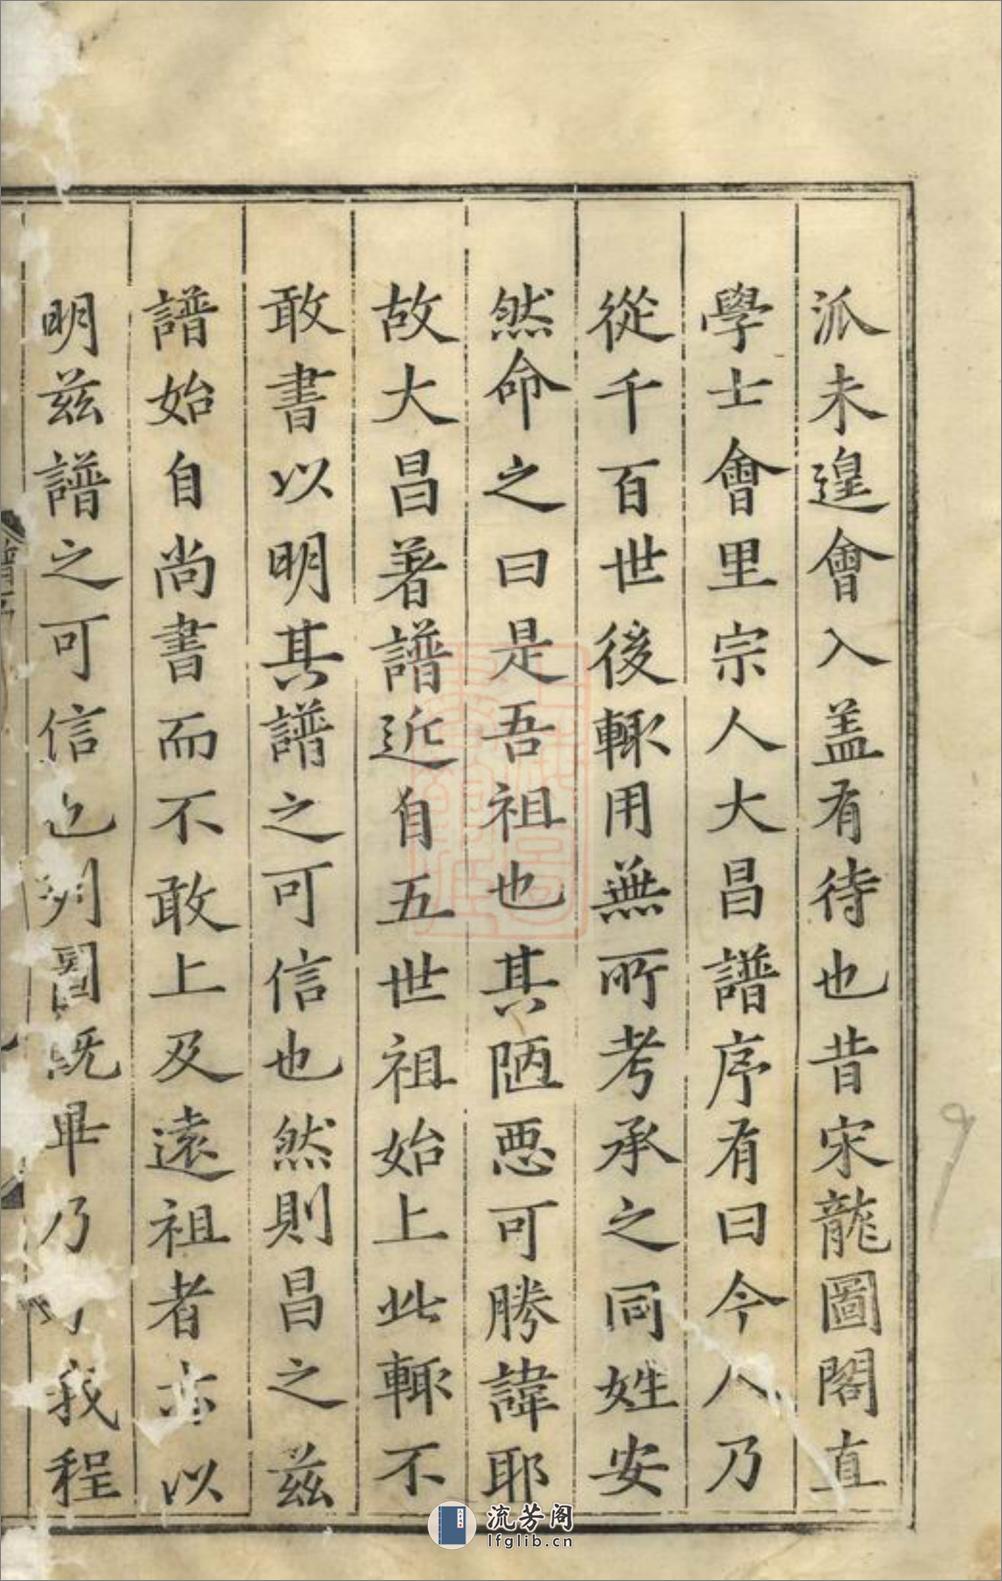 派未遑會入盖有待也昔宋龍圖閣直
學士會里宗人大昌譜序有曰今人乃
從千百世後輙用無所考承之同姓安
然命之曰是吾祖也其陋惡可勝諱耶
故大昌著譜近自五世祖始上此輙不
敢書以明其譜之可信也然則昌之兹
譜始自尚書而不敢上及遠祖者亦以
明兹譜之可信也列圖既畢乃 我程
流芳阁
lfglib.cn